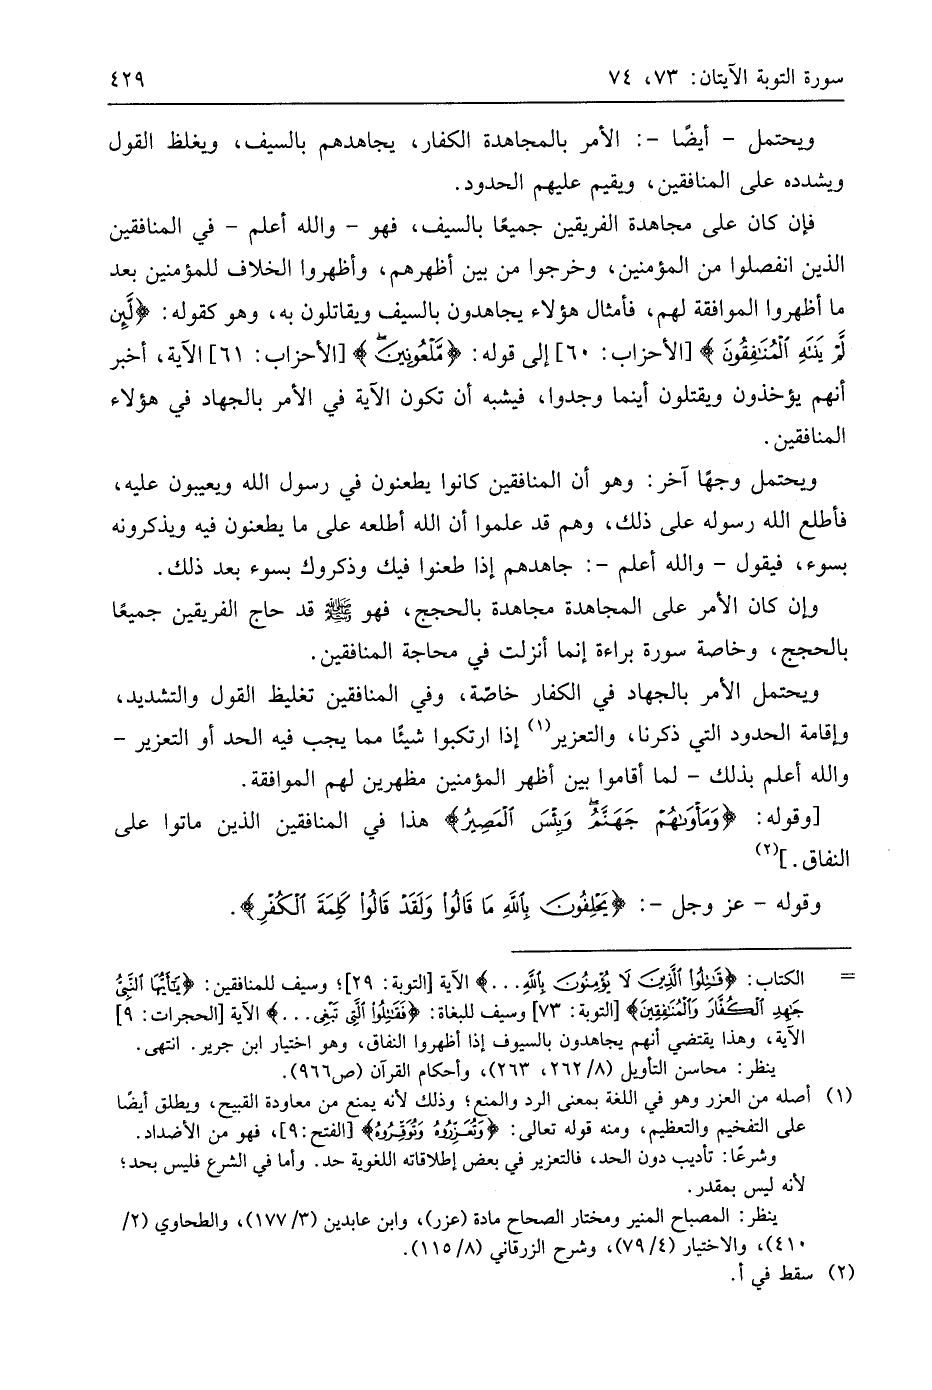 سورة التوبة الآيتان: ٧٣، ٧٤ ٤٢٩
ويحتمل - أيضًا -: الأمر بالمجاهدة الكفار، يجاهدهم بالسيف، ويغلظ القول
ويشدده على المنافقين، ويقيم عليهم الحدود.
فإن كان على مجاهدة الفريقين جميعًا بالسيف، فهو - والله أعلم - في المنافقين
الذين انفصلوا من المؤمنين، وخرجوا من بين أظهرهم، وأظهروا الخلاف للمؤمنين بعد
ما أظهروا الموافقة لهم، فأمثال هؤلاء يجاهدون بالسيف ويقاتلون به، وهو كقوله: ﴿لَّئِن
لَّمْ يَنتَهِ ٱلْمُنَٰفِقُونَ﴾ [الأحزاب: ٦٠] إلى قوله: ﴿مَّلْعُونِينَۖ﴾ [الأحزاب: ٦١] الآية، أخبر
أنهم يؤخذون ويقتلون أينما وجدوا، فيشبه أن تكون الآية في الأمر بالجهاد في هؤلاء
المنافقين.
ويحتمل وجهًا آخر: وهو أن المنافقين كانوا يطعنون في رسول الله ويعيبون عليه،
فأطلع الله رسوله على ذلك، وهم قد علموا أن الله أطلعه على ما يطعنون فيه ويذكرونه
بسوء، فيقول - والله أعلم -: جاهدهم إذا طعنوا فيك وذكروك بسوء بعد ذلك.
وإن كان الأمر على المجاهدة مجاهدة بالحجج، فهو ﷺ قد حاج الفريقين جميعًا
بالحجج، وخاصة سورة براءة إنما أنزلت في محاجة المنافقين.
ويحتمل الأمر بالجهاد في الكفار خاصّة، وفي المنافقين تغليظ القول والتشديد،
وإقامة الحدود التي ذكرنا، والتعزير(١) إذا ارتكبوا شيئًا مما يجب فيه الحد أو التعزير -
والله أعلم بذلك - لما أقاموا بين أظهر المؤمنين مظهرين لهم الموافقة.
[وقوله: ﴿وَمَأْوَىٰهُمْ جَهَنَّمُۖ وَبِئْسَ ٱلْمَصِيرُ﴾ هذا في المنافقين الذين ماتوا على
النفاق.](٢)
وقوله - عز وجل -: ﴿يَحْلِفُونَ بِٱللَّهِ مَا قَالُوا۟ وَلَقَدْ قَالُوا۟ كَلِمَةَ ٱلْكُفْرِ﴾.
= الكتاب: ﴿قَٰتِلُوا۟ ٱلَّذِينَ لَا يُؤْمِنُونَ بِٱللَّهِ...﴾ الآية [التوبة: ٢٩]؛ وسيف للمنافقين: ﴿يَٰٓأَيُّهَا ٱلنَّبِىُّ
جَٰهِدِ ٱلْكُفَّارَ وَٱلْمُنَٰفِقِينَ﴾ [التوبة: ٧٣] وسيف للبغاة: ﴿فَقَٰتِلُوا۟ ٱلَّتِى تَبْغِى...﴾ الآية [الحجرات: ٩]
الآية، وهذا يقتضي أنهم يجاهدون بالسيوف إذا أظهروا النفاق، وهو اختيار ابن جرير. انتهى.
ينظر: محاسن التأويل (٢٦٢/٨، ٢٦٣)، وأحكام القرآن (ص٩٦٦).
(١) أصله من العزر وهو في اللغة بمعنى الرد والمنع؛ وذلك لأنه يمنع من معاودة القبيح، ويطلق أيضًا
على التفخيم والتعظيم، ومنه قوله تعالى: ﴿وَتُعَزِّرُوهُ وَتُوَقِّرُوهُ﴾ [الفتح:٩]، فهو من الأضداد.
وشرعًا: تأديب دون الحد، فالتعزير في بعض إطلاقاته اللغوية حد. وأما في الشرع فليس بحد؛
لأنه ليس بمقدر.
ينظر: المصباح المنير ومختار الصحاح مادة (عزر)، وابن عابدين (١٧٧/٣)، والطحاوي (٢/
٤١٠)، والاختيار (٧٩/٤)، وشرح الزرقاني (١١٥/٨).
(٢) سقط في أ.